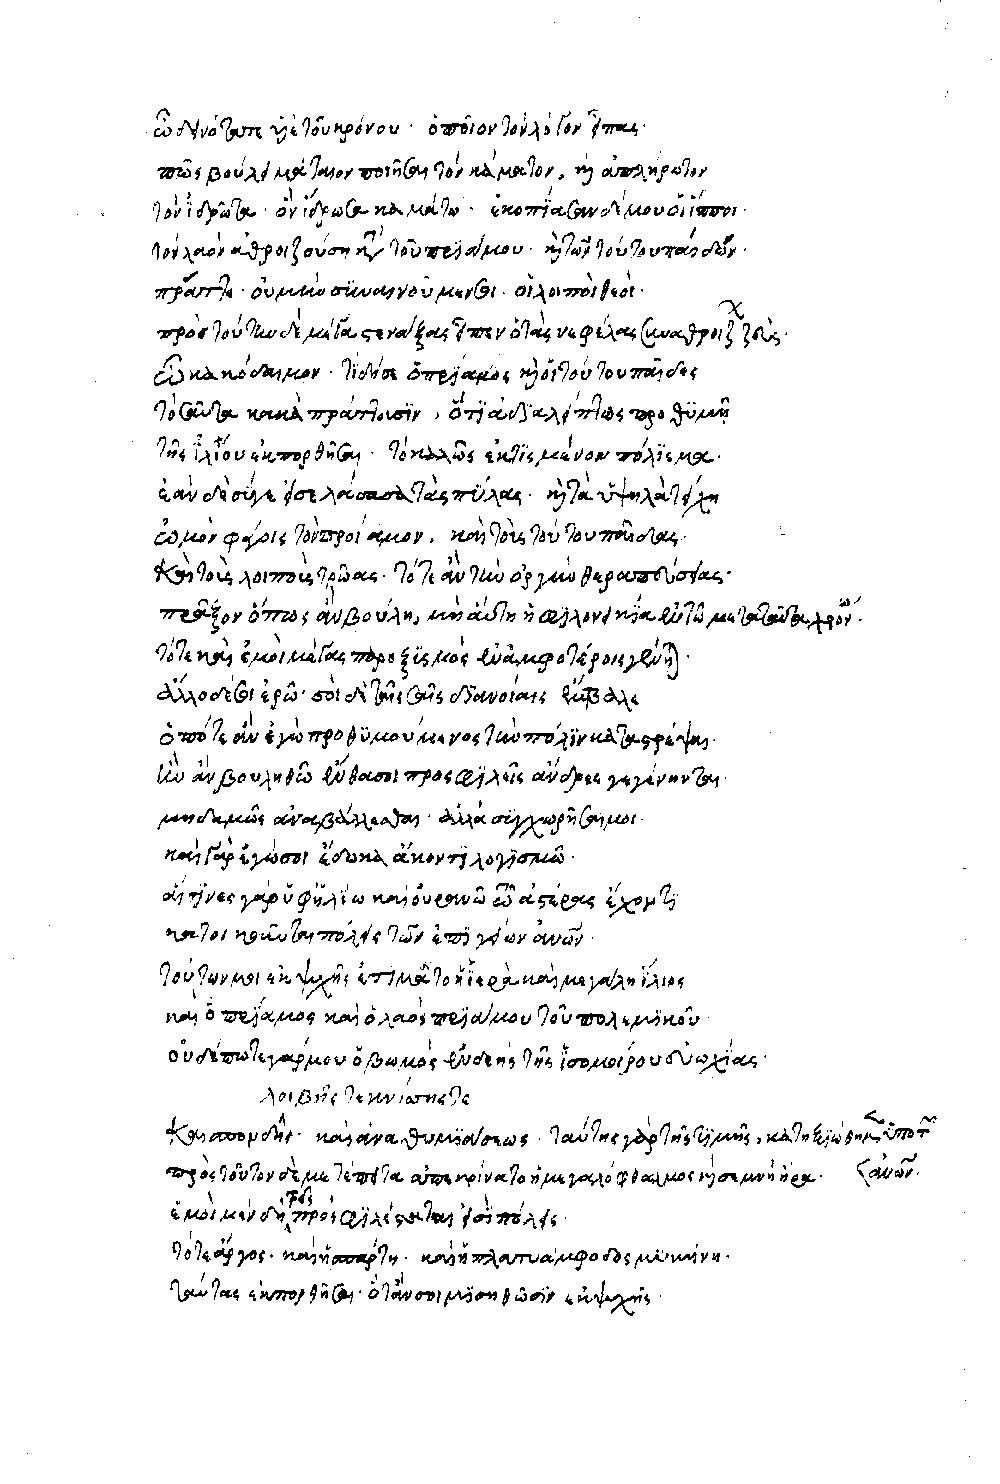 ὦ δεινότατε υἱὲ τοῦ κρόνου · ὁποῖον τὸν λόγον εἶπας ·
πῶς βούλει μάταιον ποιῆσαι τὸν κάματον, ἢ ἀπλήρωτον
τὸν ἱδρῶτα · ὃν ἵδρωσα καμάτω · ἐκοπίασαν δέ μου οἱ ἵπποι ·
τὸν λαὸν ἀθροιζούση κατὰ τοῦ πριάμου · καὶ τῶν τούτου παίδων ·
πρᾶττε · οὐ μὴν συναινοῦμεν σοι · οἱ λοιποὶ θεοὶ ·
πρὸς τοῦτον δὲ μέγα στενάξας εἶπεν ὁ τὰς νεφέλας συναθροίζων ζεὺς ·
ὦ κακόδαιμον · τί δή σε ὁ πρίαμος καὶ οἱ τούτου παῖδες
τοσαῦτα κακὰ πράττουσιν, ὅτι ἀδιαλείπτως προθυμῆ
τῆς ἰλίου ἐκπορθῆσαι · τὸ καλῶς ἐκτισμένον πόλισμα ·
ἐὰν δὲ σύγε εἰσελάσασα τὰς πύλας · καὶ τὰ ὑψηλὰ τείχη
ὠμὸν φάγοις τὸν πρίαμον, καὶ τοὺς τούτου παῖδας ·
καὶ τοὺς λοιποὺς τρῶας · τότε ἂν τὴν ὀργὴν θεραπεύσειας ·
πρᾶξον ὅπως ἂν βούλη, μὴ αὕτη ἡ φιλονεικία ἐν τῶ μετὰ ταῦτα χρόνω ·
τότε καὶ ἐμοὶ μέγας παροξυσμὸς ἐν ἀμφοτέροις γένηται ·
ἄλλο δέ σοι ἐρῶ · σὺ δὲ τῆς σῆς διανοίαις ἔμβαλε
ὁπότε ἂν ἐγὼ προθυμούμενος τὴν πόλιν καταστρέψαι ·
ἣν ἂν βουληθῶ ἔνθα σοι προσφιλεῖς ἄνδρες γεγένηνται
μηδαμῶς ἀναβάλλεσθαι · ἀλλὰ συγχωρῆσαί μοι ·
καὶ γὰρ ἐγώ σοι ἔδωκα ἄκοντι λογισμῶ ·
αἵτινες γὰρ ὑφ' ἡλίω καὶ οὐρανῶ τῶ ἀστέρας ἔχοντι
κατοικοῦνται πόλεις τῶν ἐπιγείων ἀνῶν ·
τούτων μοι ἐκ ψυχῆς ἐτιμᾶτο ἡ ἱερὰ καὶ μεγάλη ἴλιος
καὶ ὁ πρίαμος καὶ ὁ λαὸς πριάμου τοῦ πολεμικοῦ ·
οὐδέποτε γάρ μου ὁ βωμὸς ἐνδεὴς τῆς ἰσομοίρου εὐωχίας ·
λοιβῆς τε κνίσης τε
καὶ σπονδῆς · καὶ ἀναθυμιάσεως · ταύτης γὰρ τῆς τιμῆς, κατηξιώθημεν ὑπὸ τῶν
πρὸς τοῦτον δὲ μετέπειτα ἀπεκρίνατο ἡ μεγαλόφθαλμος καὶ σεμνὴ ἥρα · ἀνῶν ·
ἐμοὶ μὲν δὴ τρεῖς προσφιλέσταται εἰσὶ πόλεις ·
τό τε ἄργος · καὶ ἡ σπάρτη · καὶ ἡ πλατυάμφοδος μυκήνη ·
ταύτας ἐκπορθῆσαι · ὅταν σοι μισηθῶσιν ἐκ ψυχῆς ·